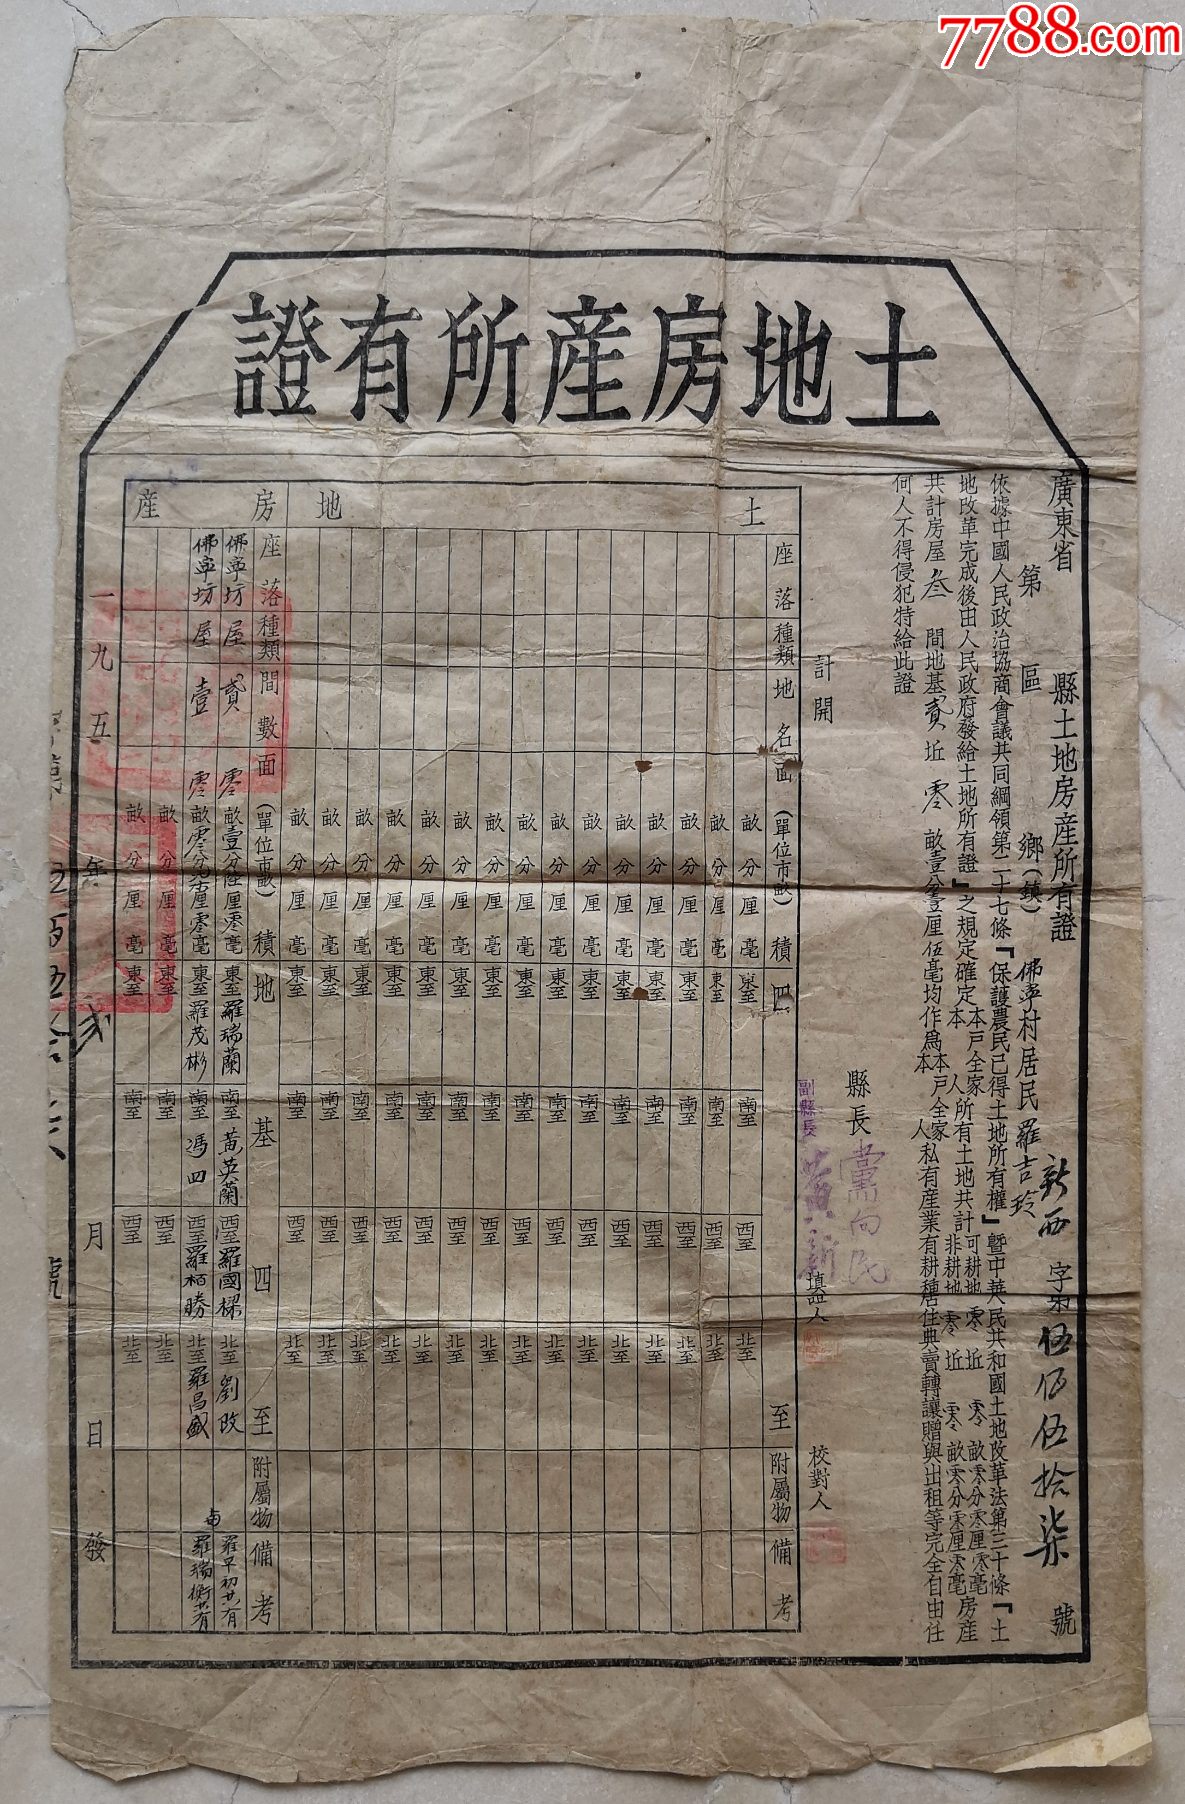 7788.com
土地房產所有證
廣東省 縣土地房產所有證 新西 字第 伍佰伍拾柒 號
第 區 鄉(鎮) 佛寧村居民羅吉玲
依據中國人民政治協商會議共同綱領第二十七條「保護農民已得土地所有權」暨中華人民共和國土地改革法第三十條「土
地改革完成後由人民政府發給土地所有證」之規定確定本戶全家本人所有土地共計可耕地零坵零畝零分零厘零毫非耕地零坵零畝零分零厘零毫房產
共計房屋叁間地基貳坵零畝壹分 厘伍毫均作為本戶全家本人私有產業有耕種居住典賣轉讓贈與出租等完全自由任
何人不得侵犯特給此證
計開
縣長 黨向民
副縣長 黃新
填證人
校對人
土地
座落 種類 地名 面積(單位市畝) 四至 附屬物 備考
畝分厘毫 東至 南至 西至 北至
畝分厘毫 東至 南至 西至 北至
畝分厘毫 東至 南至 西至 北至
畝分厘毫 東至 南至 西至 北至
畝分厘毫 東至 南至 西至 北至
畝分厘毫 東至 南至 西至 北至
畝分厘毫 東至 南至 西至 北至
畝分厘毫 東至 南至 西至 北至
畝分厘毫 東至 南至 西至 北至
畝分厘毫 東至 南至 西至 北至
畝分厘毫 東至 南至 西至 北至
畝分厘毫 東至 南至 西至 北至
畝分厘毫 東至 南至 西至 北至
畝分厘毫 東至 南至 西至 北至
畝分厘毫 東至 南至 西至 北至
房產
座落 種類 間數 面積(單位市畝) 地基四至 附屬物 備考
佛寧坊 屋 貳 零畝壹分陸厘零毫 東至羅瑞蘭 南至黃英蘭 西至羅國樑 北至劉改 羅早初共有
佛寧坊 屋 壹 零畝零分柒厘零毫 東至羅茂彬 南至馮四 西至羅栢勝 北至羅昌盛 與羅瑞衡共有
畝分厘毫 東至 南至 西至 北至
畝分厘毫 東至 南至 西至 北至
一九五 年 月 日發